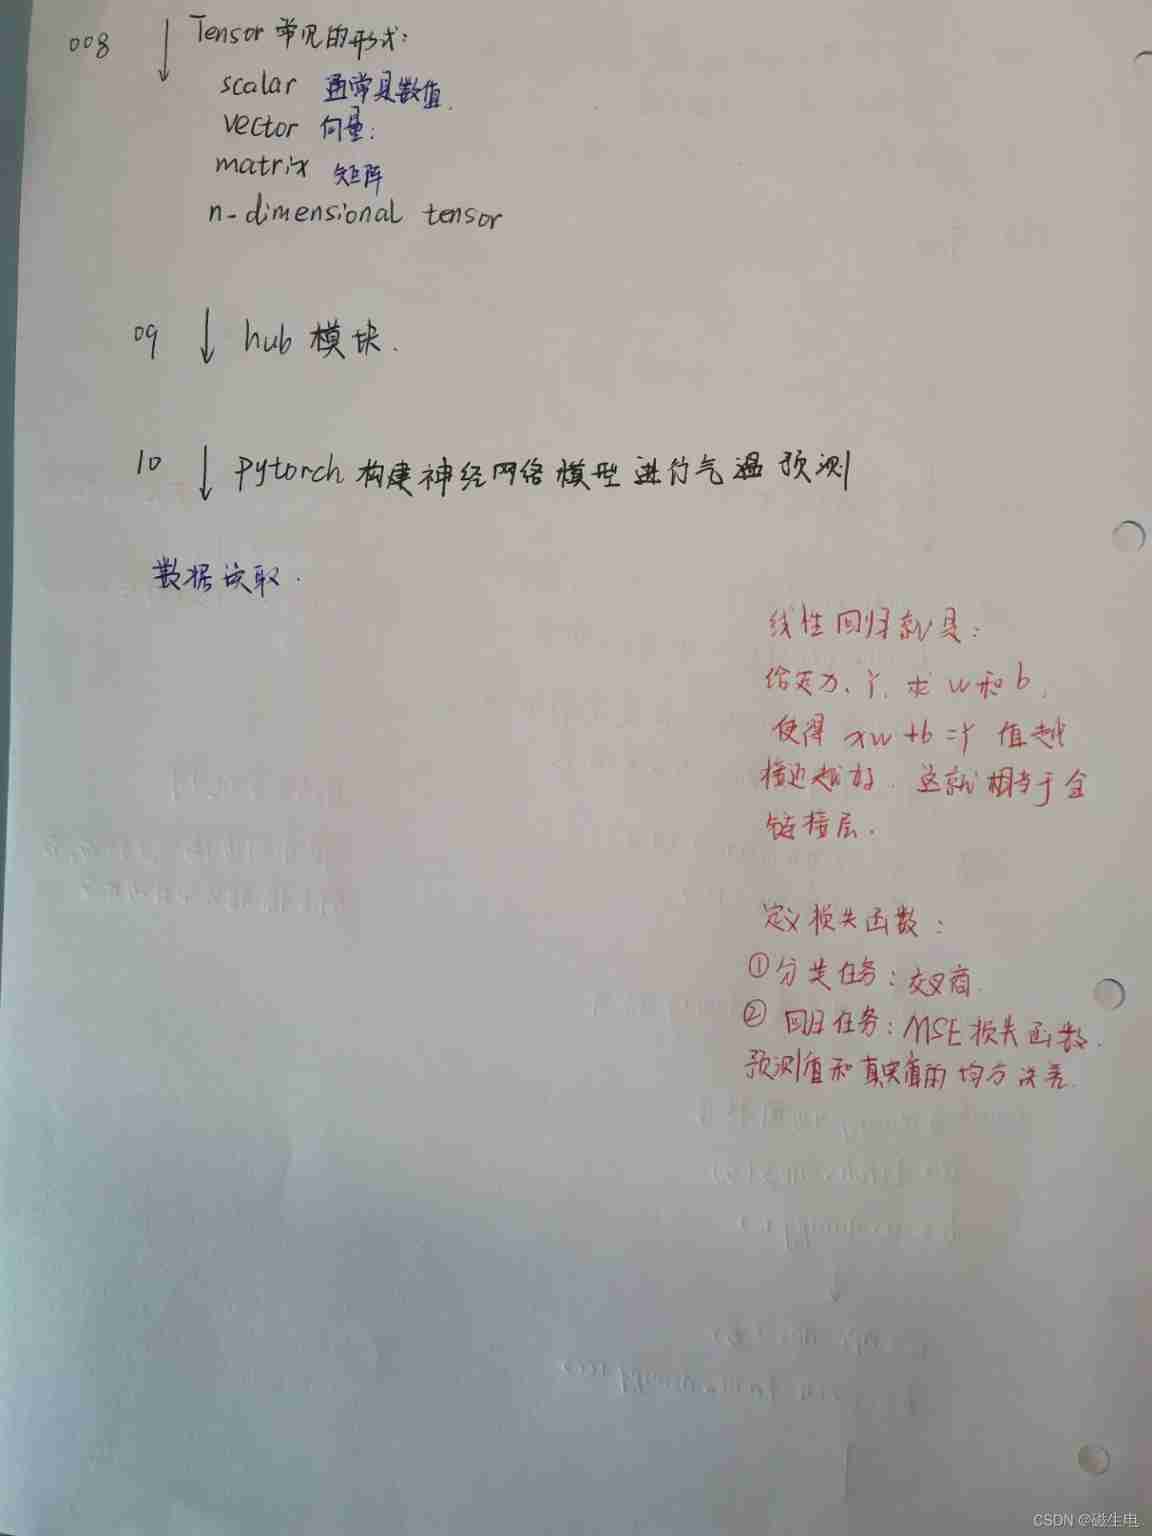 008 ↓ Tensor 常见的形式:
scalar 通常是数值.
vector 向量:
matrix 矩阵
n-dimensional tensor
09 ↓ hub 模块.
10 ↓ pytorch 构建神经网络模型进行气温预测
数据读取.
线性回归就是:
给定x、Y, 求 w 和 b,
使得 xw+b=Y 值越
接近越好. 这就相当于全
链接层.
定义损失函数:
①分类任务: 交叉商.
② 回归任务: MSE 损失函数.
预测值和真实值的均方误差.
CSDN @磁生电